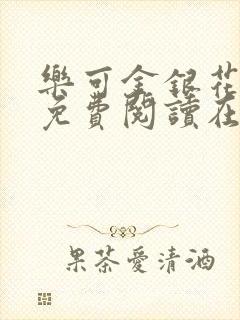 樂可金銀花
免費閱讀在
果茶愛清酒